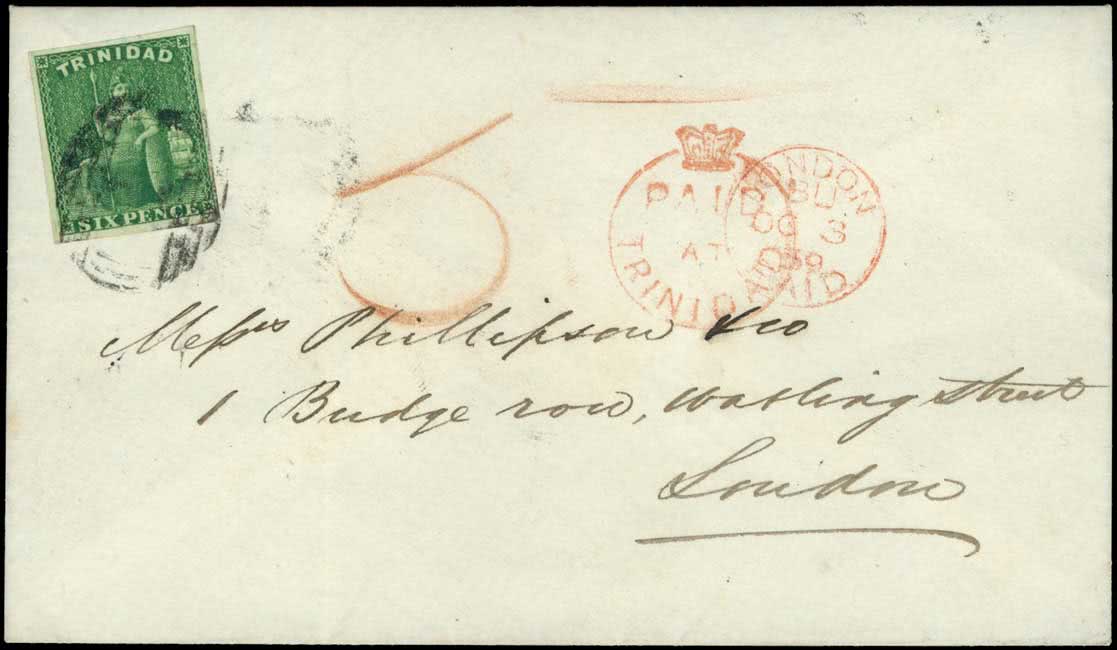 TRINIDAD
SIX PENCE
6
PAID
AT
TRINIDAD
LONDON
BU
OC 3
59
PAID
Messrs Phillipson & Co
1 Budge row, Watling Street
London